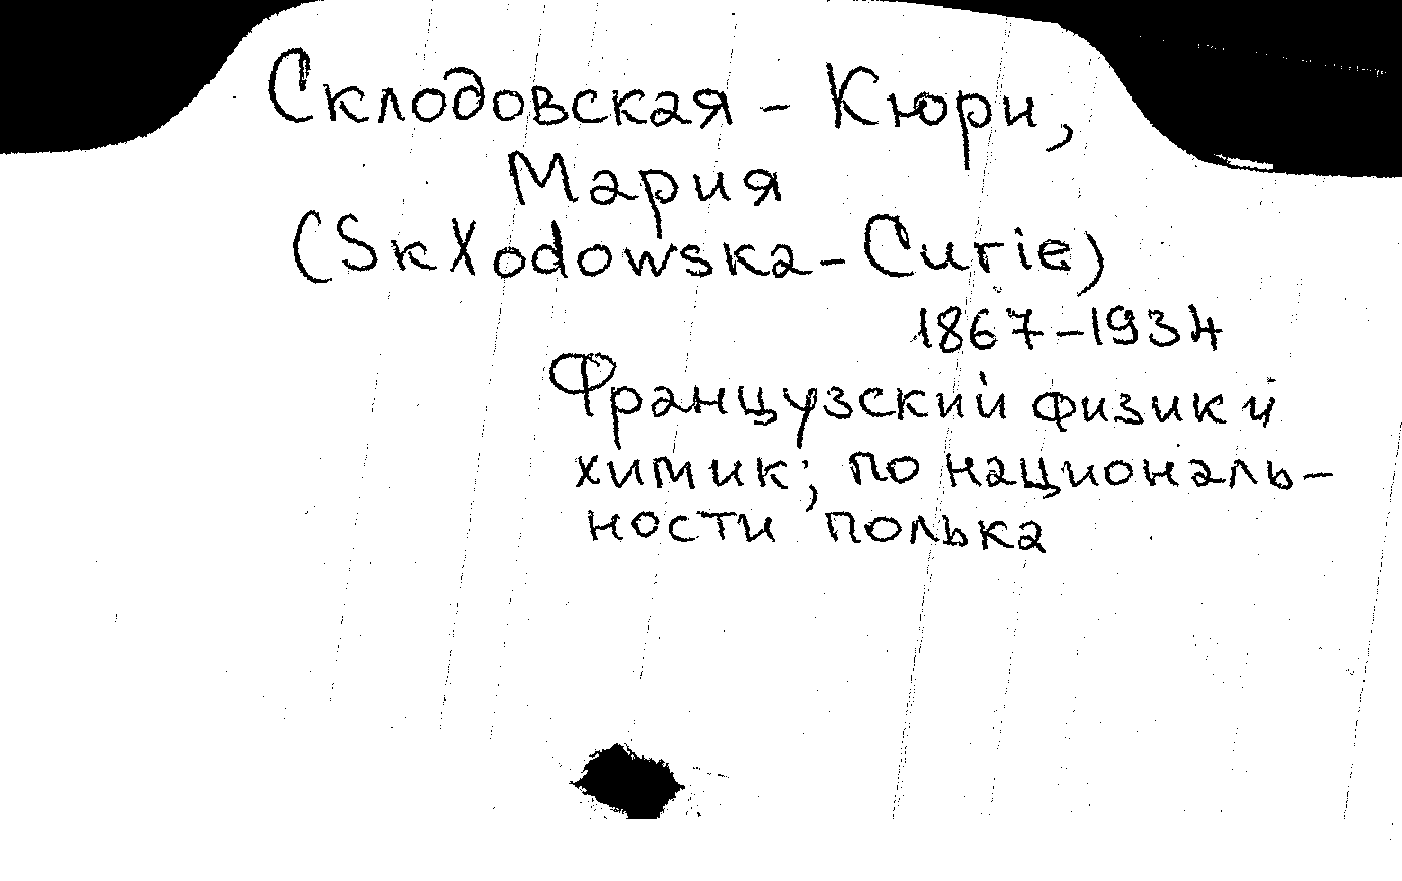 Склодовская - Кюри,
Мария
(SkXodowska-Curie)
1867-1934
Французский физик и
химик; по националь-
ности полька